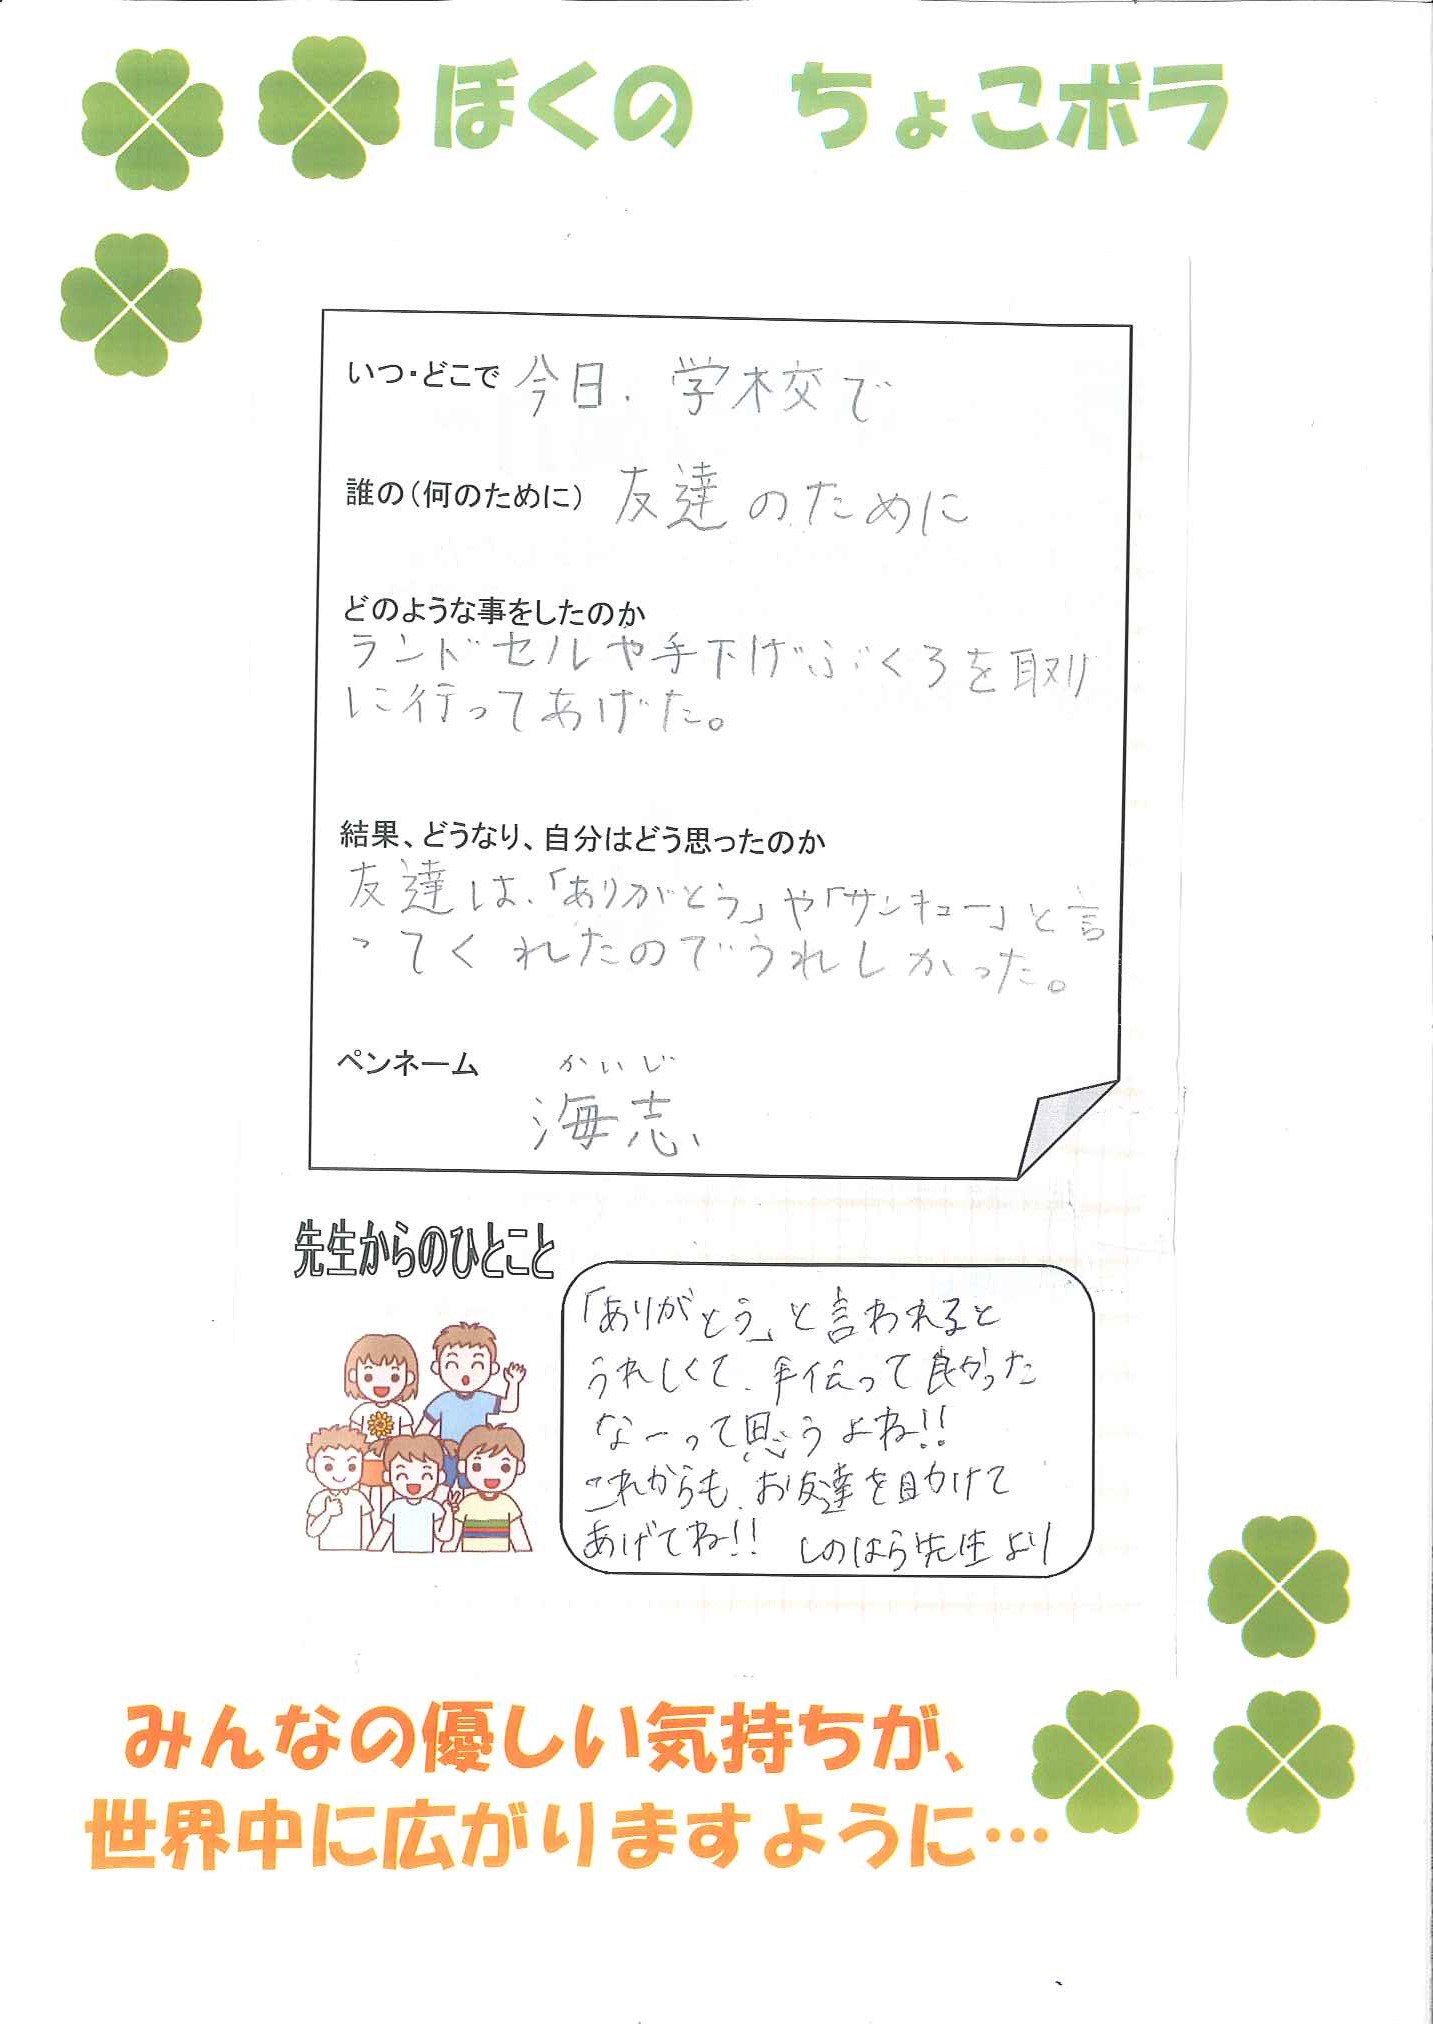 ぼくの　ちょこボラ
いつ・どこで 今日、学校で
誰の（何のために） 友達のために
どのような事をしたのか
ランドセルや手下げぶくろを取り
に行ってあげた。
結果、どうなり、自分はどう思ったのか
友達は、「ありがとう」や「サンキュー」と言
ってくれたのでうれしかった。
かいじ
ペンネーム 海志
先生からのひとこと
「ありがとう」と言われると
うれしくて、手伝って良かった
なーって思うよね!!
これからも、お友達を助けて
あげてね!! しのはら先生より
みんなの優しい気持ちが、
世界中に広がりますように…